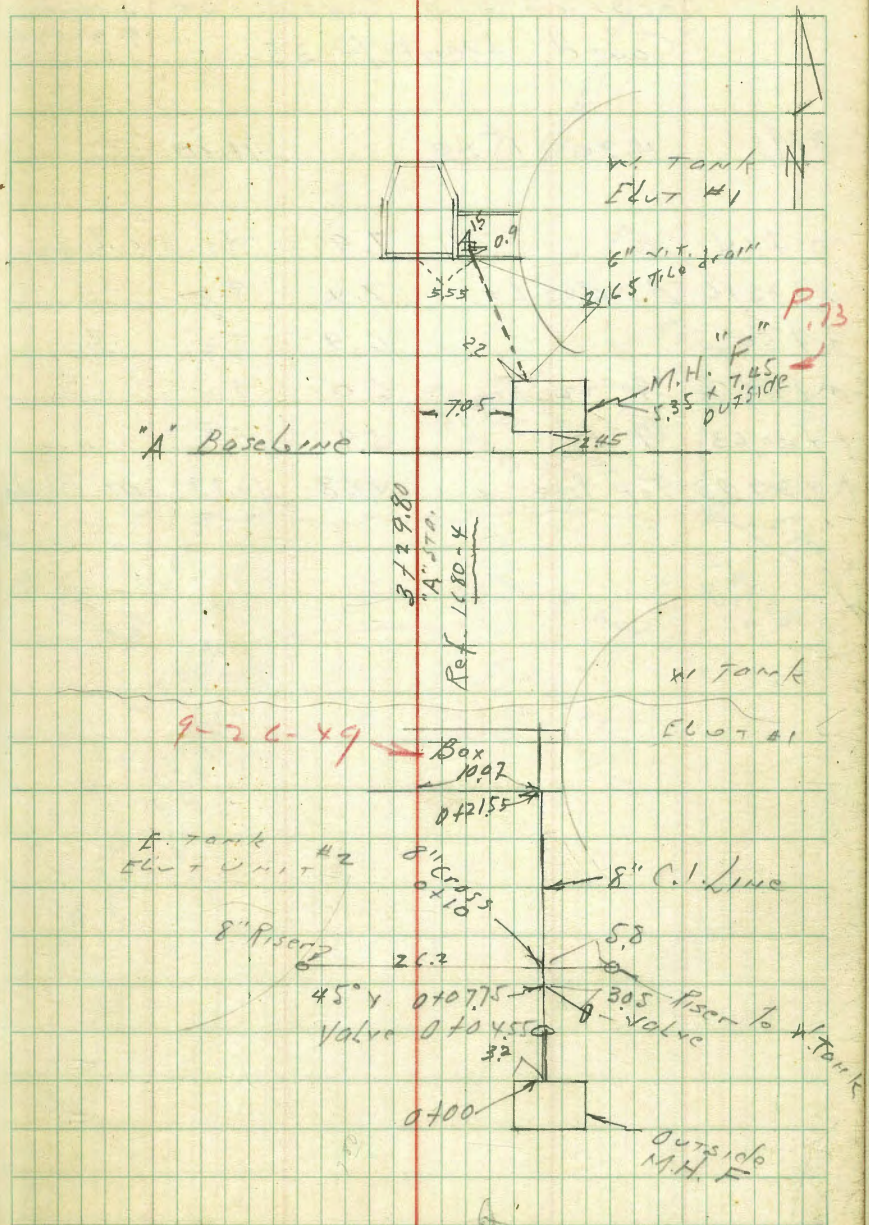 N
W. Tank
Elut #1
15
0.9
6" V.T. drain
21.65 Tile
5.55
P. 73
2.2
M.H. "F"
5.35 x 7.45
outside
7.05
2.45
"A" Baseline
3+29.80
"A" Sta.
Ref. 1680-4
W. Tank
Elut #1
9-26-49
Box
10.92
0+21.55
E. Tank
Elut Unit #2
8" Cross
0+10
8" C.I. Line
8" Riser
5.8
26.2
45° Y 0+07.75
3.05
Riser to W. Tank
Valve
Valve 0+04.55
3.2
0+00
Outside
M.H. F